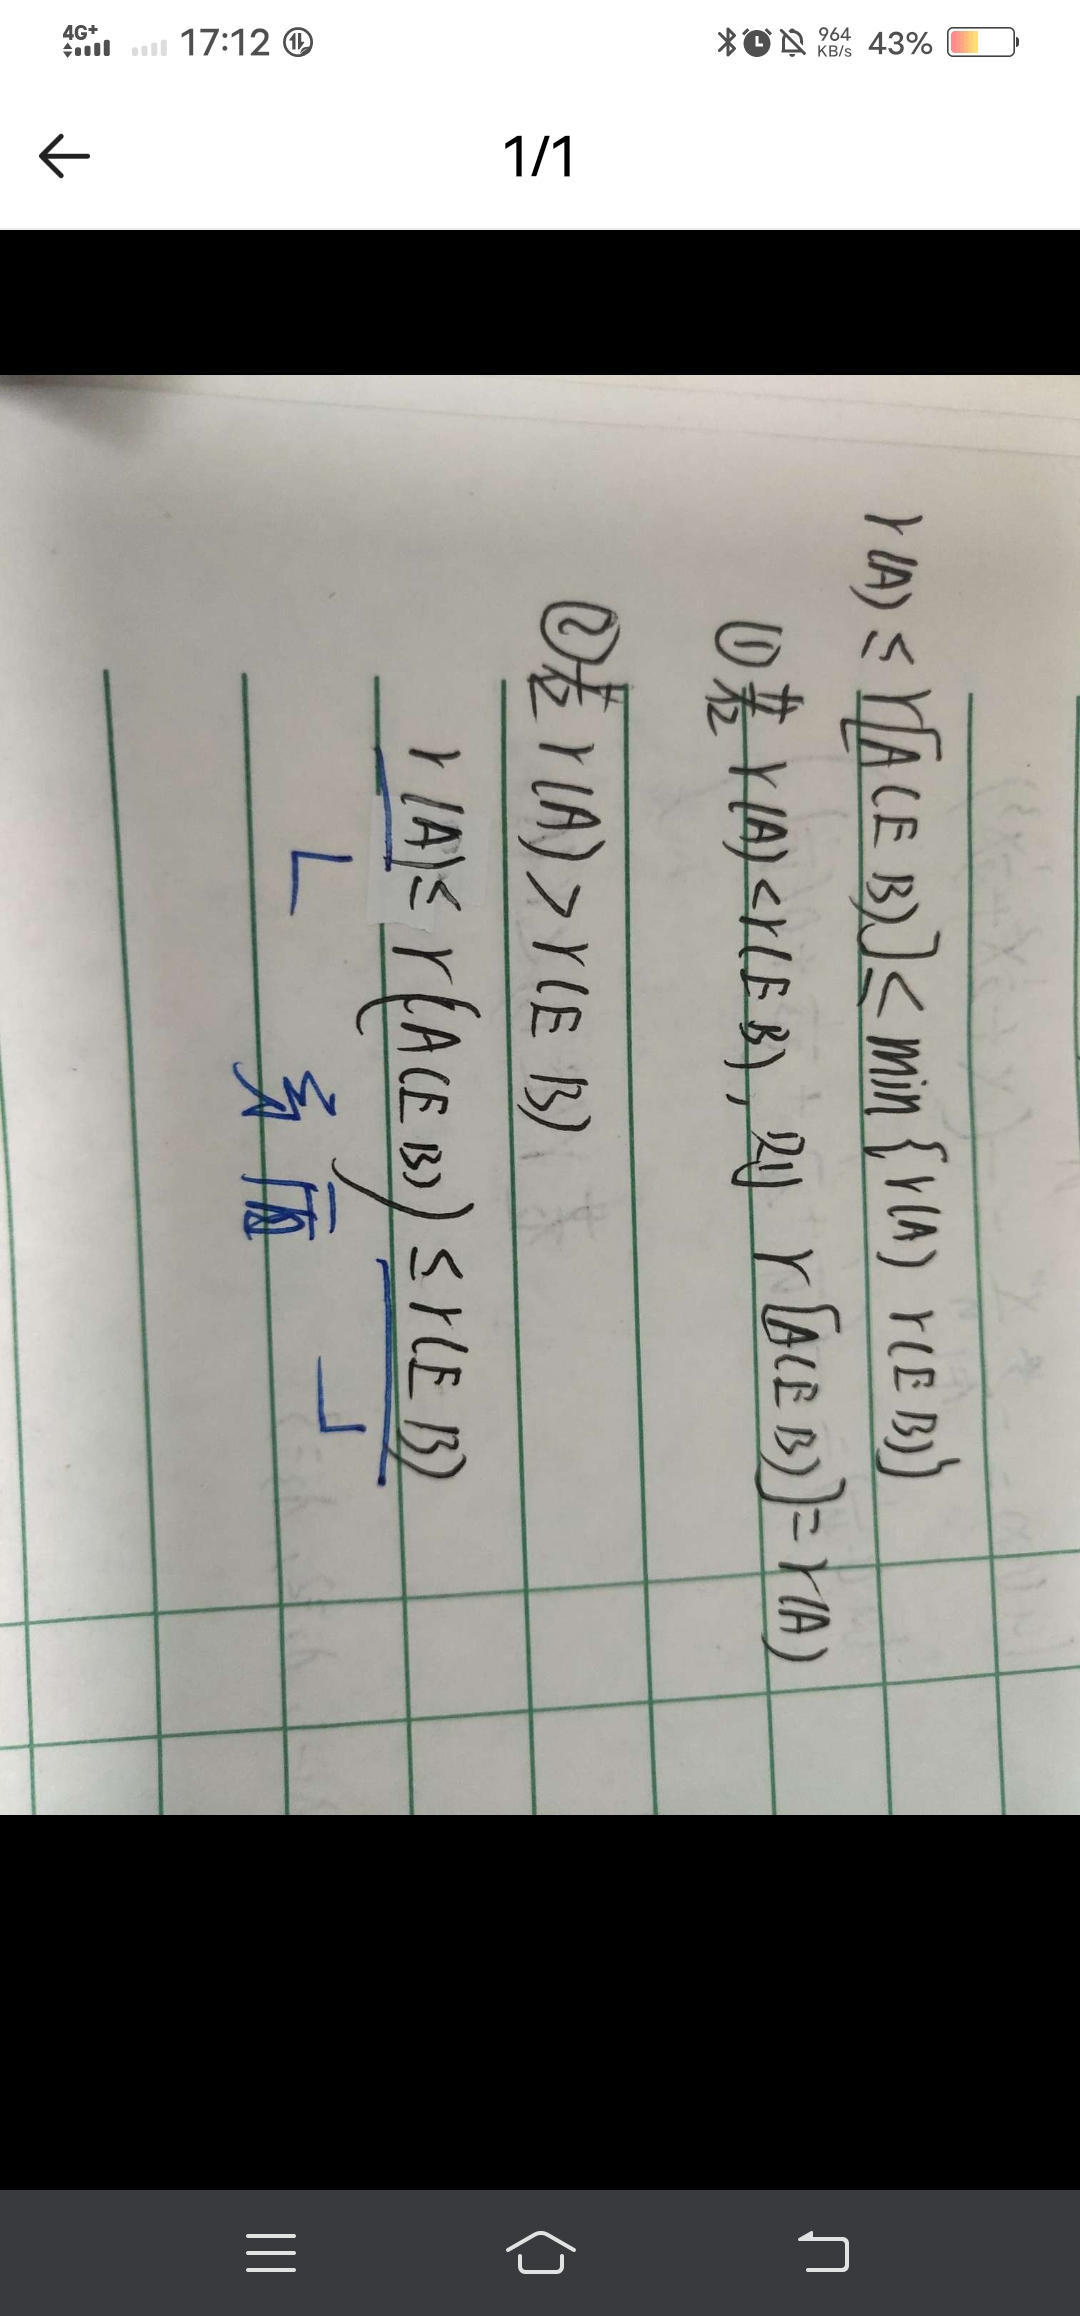 4G+ 17:12 964 KB/s 43%
1/1
r(A) ≤ r[A(E B)] ≤ min{r(A) r(E B)}
① 若 r(A) < r(E B), 则 r[A(E B)] = r(A)
② 若 r(A) > r(E B)
r(A) ≤ r(A(E B)) ≤ r(E B)
矛盾